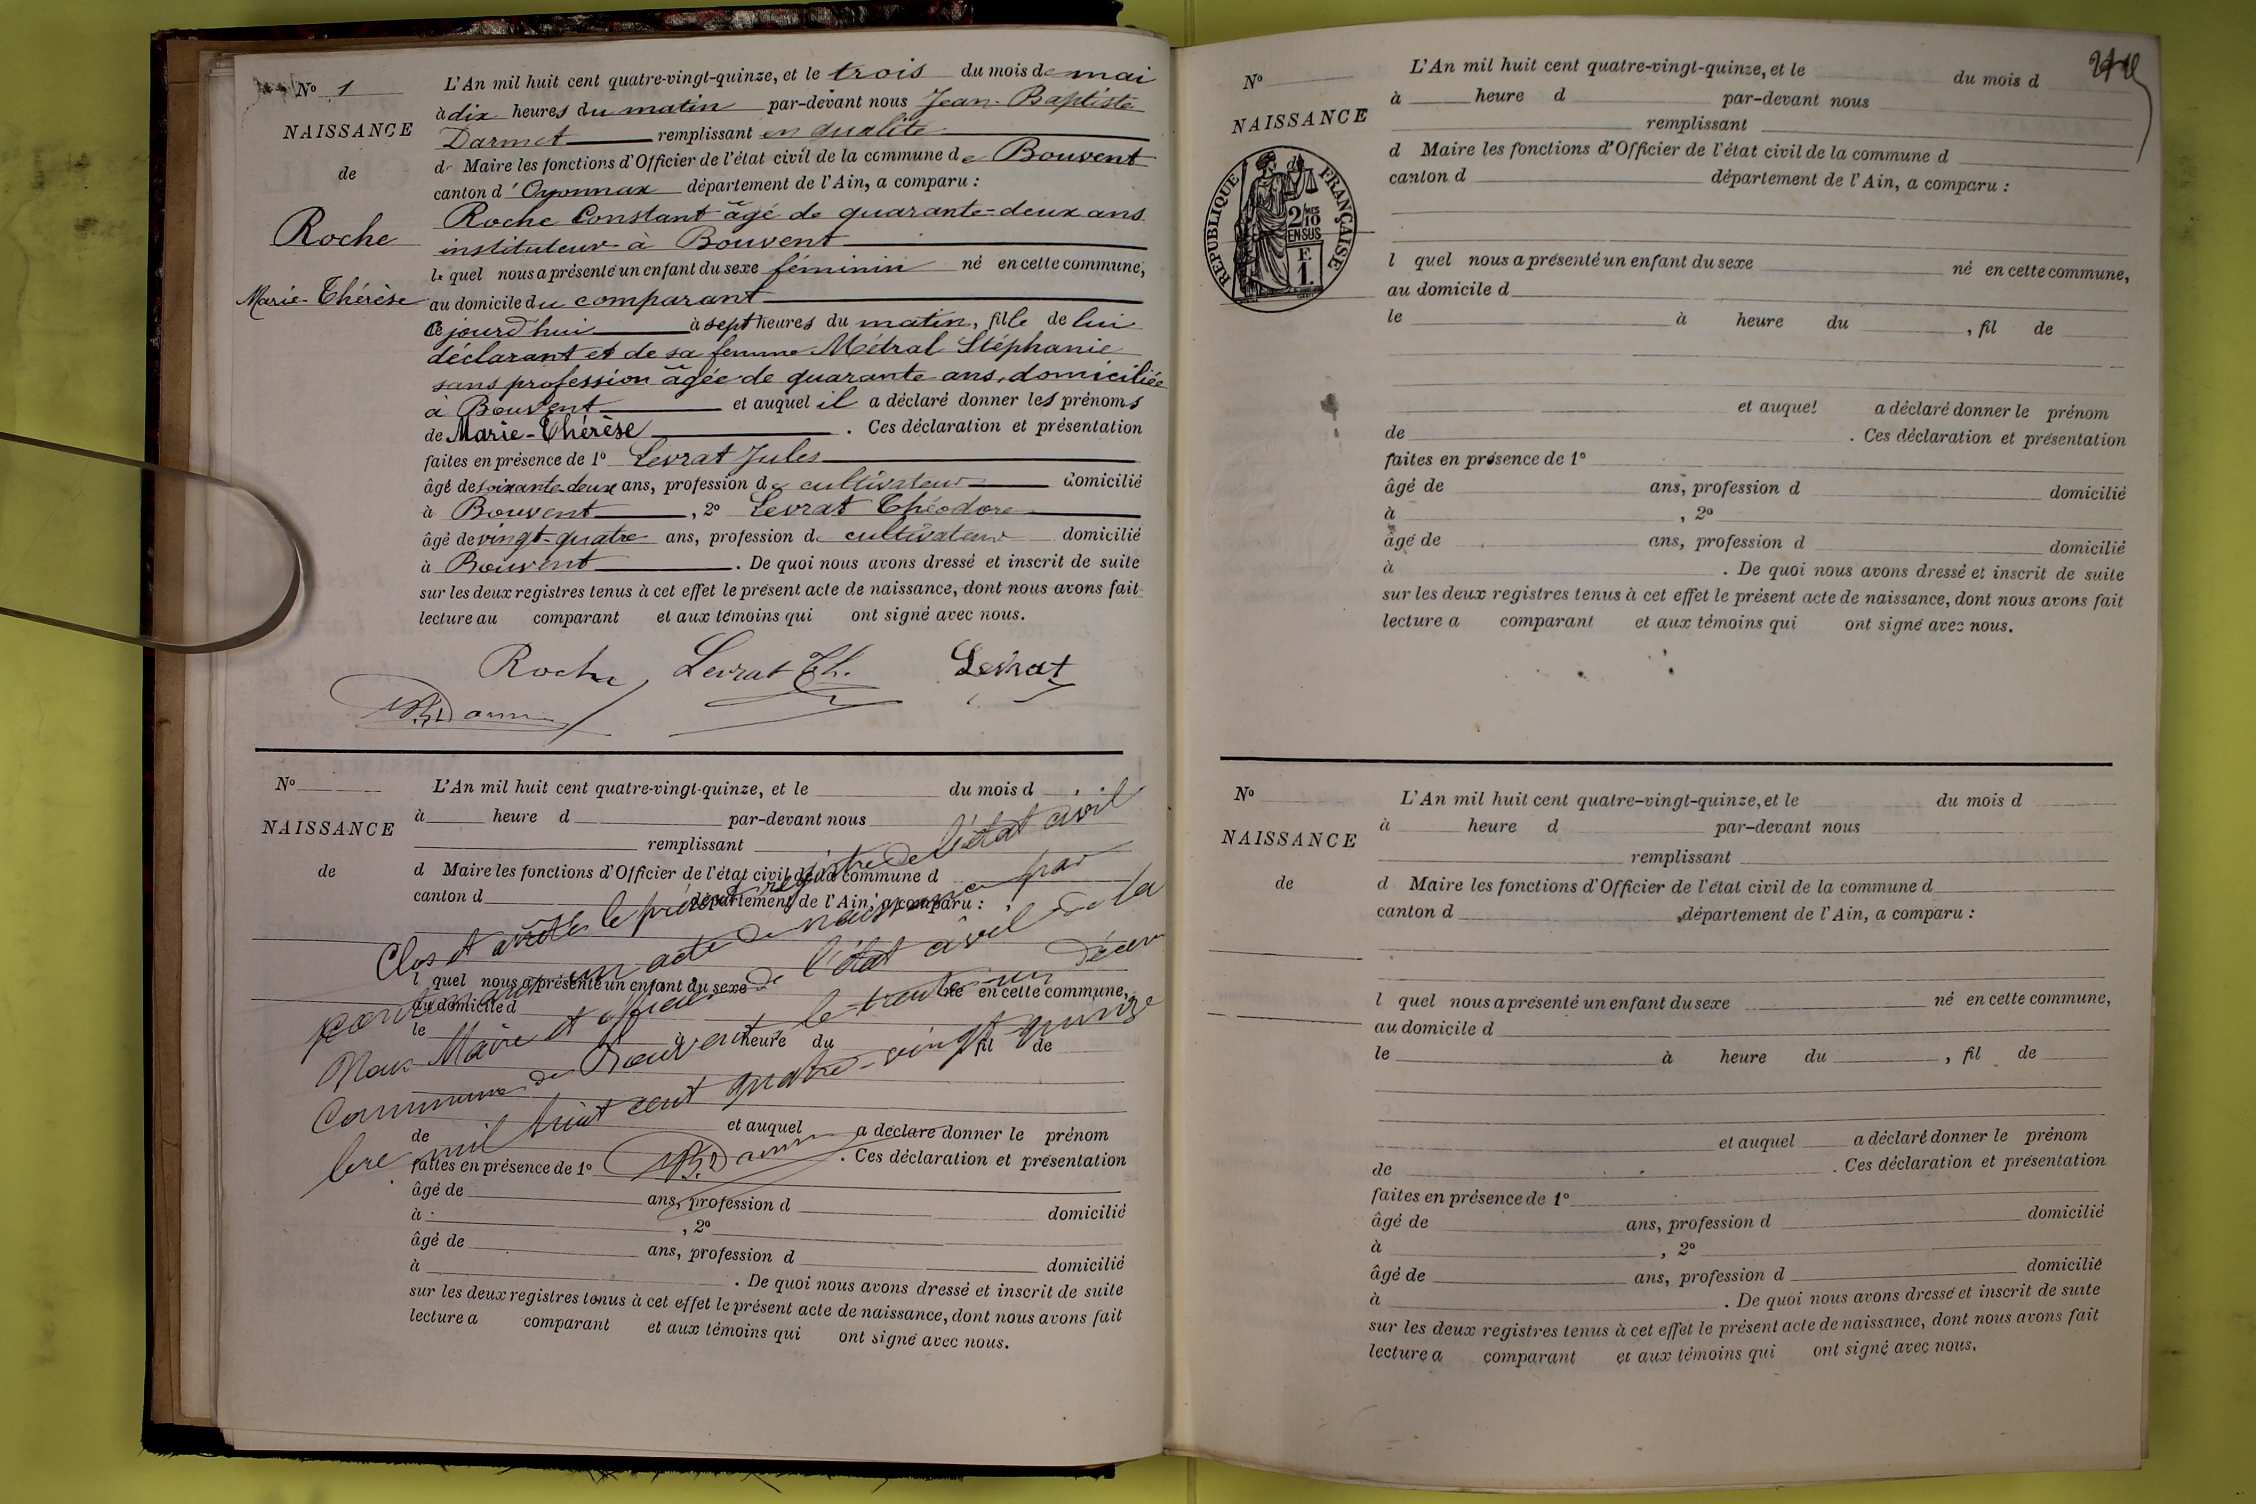 N° 1
NAISSANCE
de
Roche
Marie-Thérèse
L'An mil huit cent quatre-vingt-quinze, et le trois du mois de mai
à dix heures du matin par-devant nous Jean-Baptiste
Darmet remplissant en qualité
de Maire les fonctions d'Officier de l'état civil de la commune de Bouvent
canton d'Oyonnax département de l'Ain, a comparu :
Roche Constant âgé de quarante-deux ans
instituteur à Bouvent
lequel nous a présenté un enfant du sexe féminin né en cette commune,
au domicile du comparant
Ce jourd'hui à sept heures du matin, fille de lui
déclarant et de sa femme Métral Stéphanie
sans profession âgée de quarante ans, domiciliée
à Bouvent et auquel il a déclaré donner les prénoms
de Marie-Thérèse. Ces déclaration et présentation
faites en présence de 1° Levrat Jules
âgé de soixante-deux ans, profession de cultivateur domicilié
à Bouvent, 2° Levrat Théodore
âgé de vingt-quatre ans, profession de cultivateur domicilié
à Bouvent. De quoi nous avons dressé et inscrit de suite
sur les deux registres tenus à cet effet le présent acte de naissance, dont nous avons fait
lecture au comparant et aux témoins qui ont signé avec nous.
Roche Levrat Th. Levrat
N°
NAISSANCE
de
L'An mil huit cent quatre-vingt-quinze, et le du mois d
à heure d par-devant nous
remplissant
d Maire les fonctions d'Officier de l'état civil de la commune d
canton d département de l'Ain, a comparu :
l quel nous a présenté un enfant du sexe né en cette commune,
au domicile d
le à heure du fil de
et auquel a déclaré donner le prénom
de . Ces déclaration et présentation
faites en présence de 1°
âgé de ans, profession d domicilié
à , 2°
âgé de ans, profession d domicilié
à . De quoi nous avons dressé et inscrit de suite
sur les deux registres tenus à cet effet le présent acte de naissance, dont nous avons fait
lecture a comparant et aux témoins qui ont signé avec nous.
Clos et arrêté le présent registre de l'état civil
contenant un acte de naissance par
Nous Maire et officier de l'état civil de la
Commune de Bouvent le trente-un décem
bre mil huit cent quatre-vingt-quinze
N°
NAISSANCE
RÉPUBLIQUE FRANÇAISE
2/10MES
EN SUS
F.
1.
L'An mil huit cent quatre-vingt-quinze, et le du mois d
à heure d par-devant nous
remplissant
d Maire les fonctions d'Officier de l'état civil de la commune d
canton d département de l'Ain, a comparu :
l quel nous a présenté un enfant du sexe né en cette commune,
au domicile d
le à heure du , fil de
et auquel a déclaré donner le prénom
de . Ces déclaration et présentation
faites en présence de 1°
âgé de ans, profession d domicilié
à , 2°
âgé de ans, profession d domicilié
à . De quoi nous avons dressé et inscrit de suite
sur les deux registres tenus à cet effet le présent acte de naissance, dont nous avons fait
lecture a comparant et aux témoins qui ont signé avec nous.
N°
NAISSANCE
de
L'An mil huit cent quatre-vingt-quinze, et le du mois d
à heure d par-devant nous
remplissant
d Maire les fonctions d'Officier de l'état civil de la commune d
canton d département de l'Ain, a comparu :
l quel nous a présenté un enfant du sexe né en cette commune,
au domicile d
le à heure du , fil de
et auquel a déclaré donner le prénom
de . Ces déclaration et présentation
faites en présence de 1°
âgé de ans, profession d domicilié
à , 2°
âgé de ans, profession d domicilié
à . De quoi nous avons dressé et inscrit de suite
sur les deux registres tenus à cet effet le présent acte de naissance, dont nous avons fait
lecture a comparant et aux témoins qui ont signé avec nous.